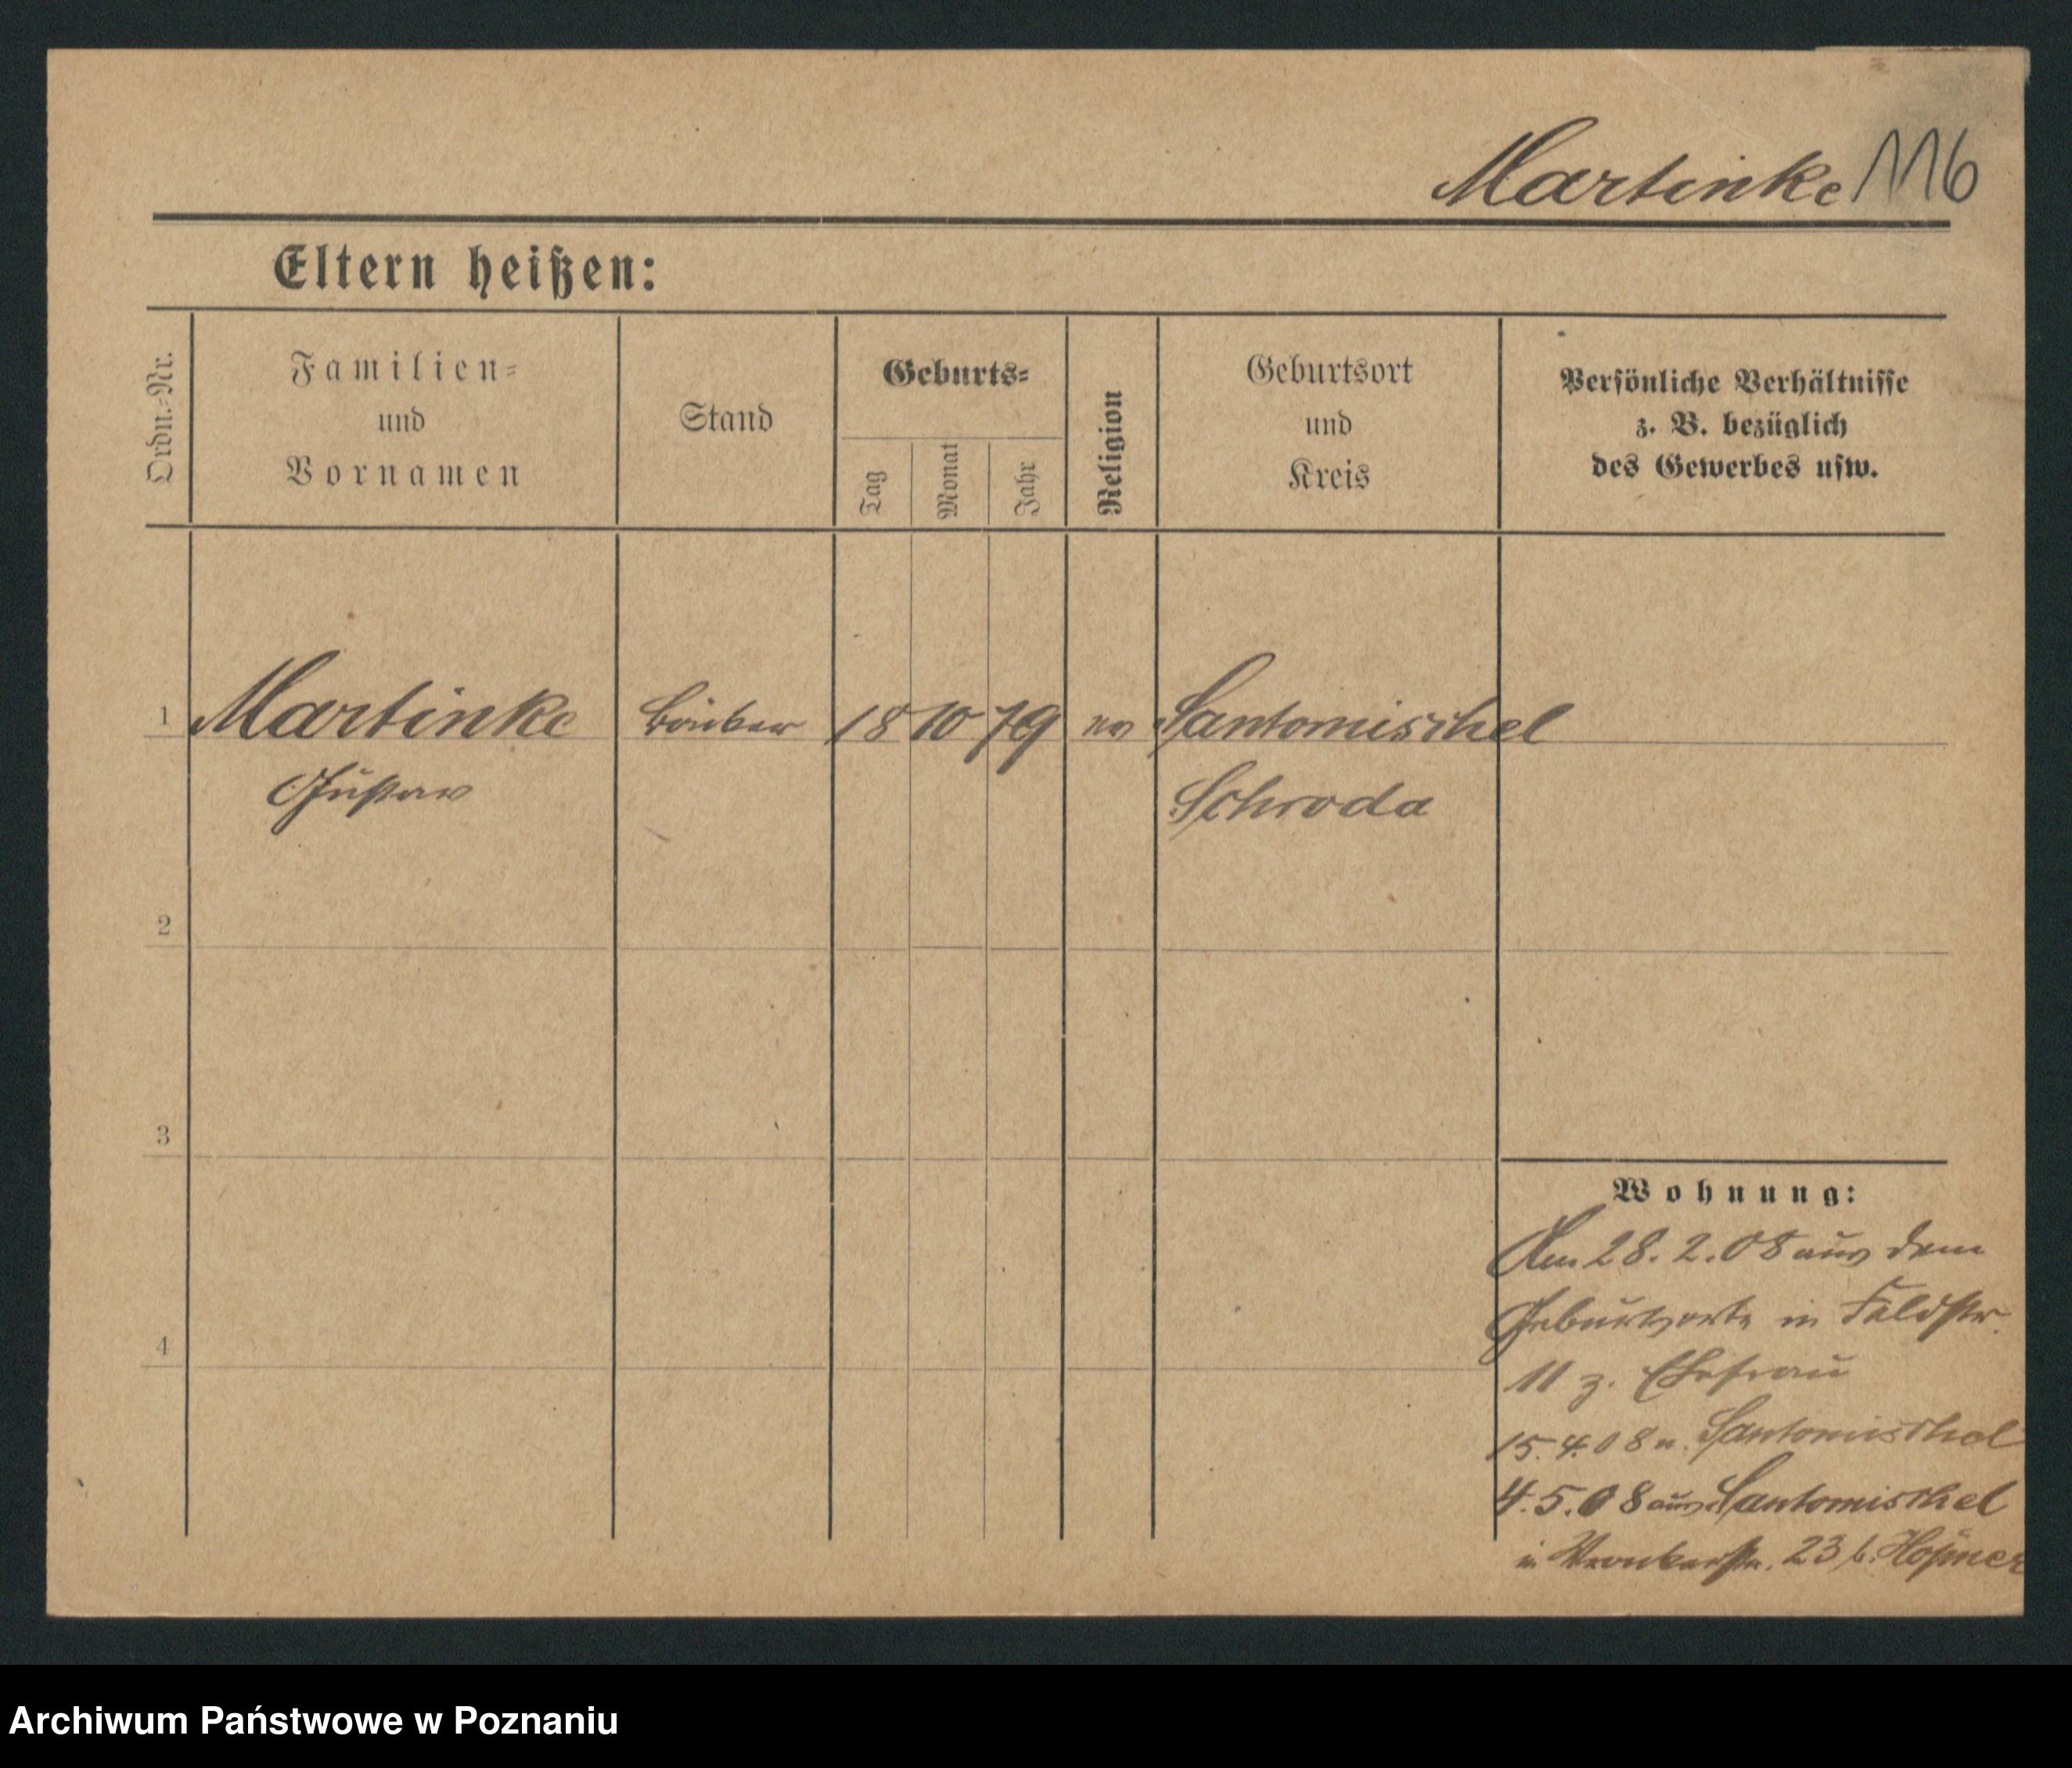 Martinke 116
Eltern heißen:
Ordn.-Nr.
Familien-
und
Vornamen
Stand
Geburts-
Tag
Monat
Jahr
Religion
Geburtsort
und
Kreis
Persönliche Verhältnisse
z. B. bezüglich
des Gewerbes usw.
1 Martinke Bäcker 18 10 79 ev Santomischel
Gustav Schroda
2
3
4
Wohnung:
Am 28. 2. 08 aus dem
Geburtsorte in Feldstr.
11 z. Ehefrau
15. 4. 08 n. Santomischel
4. 5. 08 aus Santomischel
in Wronkerstr. 23 b.
Archiwum Państwowe w Poznaniu